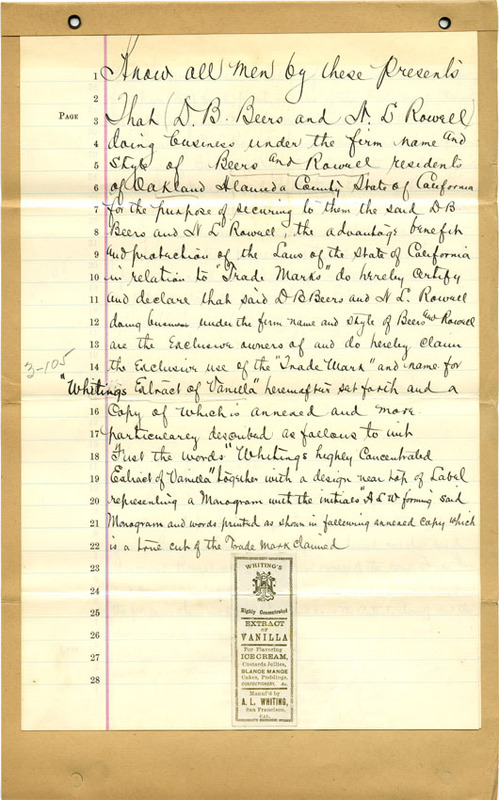 1 Know all men by these Presents
2
PAGE 3 That D. B. Beers and N. L Rowell
4 doing business under the firm name and
5 Style of Beers and Rowell residents
6 of Oakland Alameda County State of California
7 for the purpose of securing to them the said D B
8 Beers and N L Rowell, the advantage benefit
9 and protection of the Laws of the State of California
10 in relation to "Trade Marks" do hereby certify
11 and declare that said D B Beers and N L. Rowell
12 doing business under the firm name and style of Beers and Rowell
13 are the Exclusive owners of and do hereby claim
3-105
14 the Exclusive use of the "Trade Mark" and name for
"Whitings Extract of Vanilla" hereinafter set forth and a
16 Copy of which is annexed and more
17 particularey described as follows to wit
18 First the words "Whitings highly Concentrated
19 Extract of Vanilla" together with a design near top of Label
20 representing a Monogram with the initials "A L W forming said
21 Monogram and words printed as shown in following annexed copy which
22 is a true cut of the Trade Mark claimed
23
24
25
26
27
28
WHITING'S
Highly Concentrated
EXTRACT
OF
VANILLA
For Flavoring
ICE CREAM,
Custards Jellies,
BLANCE MANGE
Cakes, Puddings,
CONFECTIONERY, &c.
Manuf'd by
A. L. WHITING,
San Francisco,
CAL.